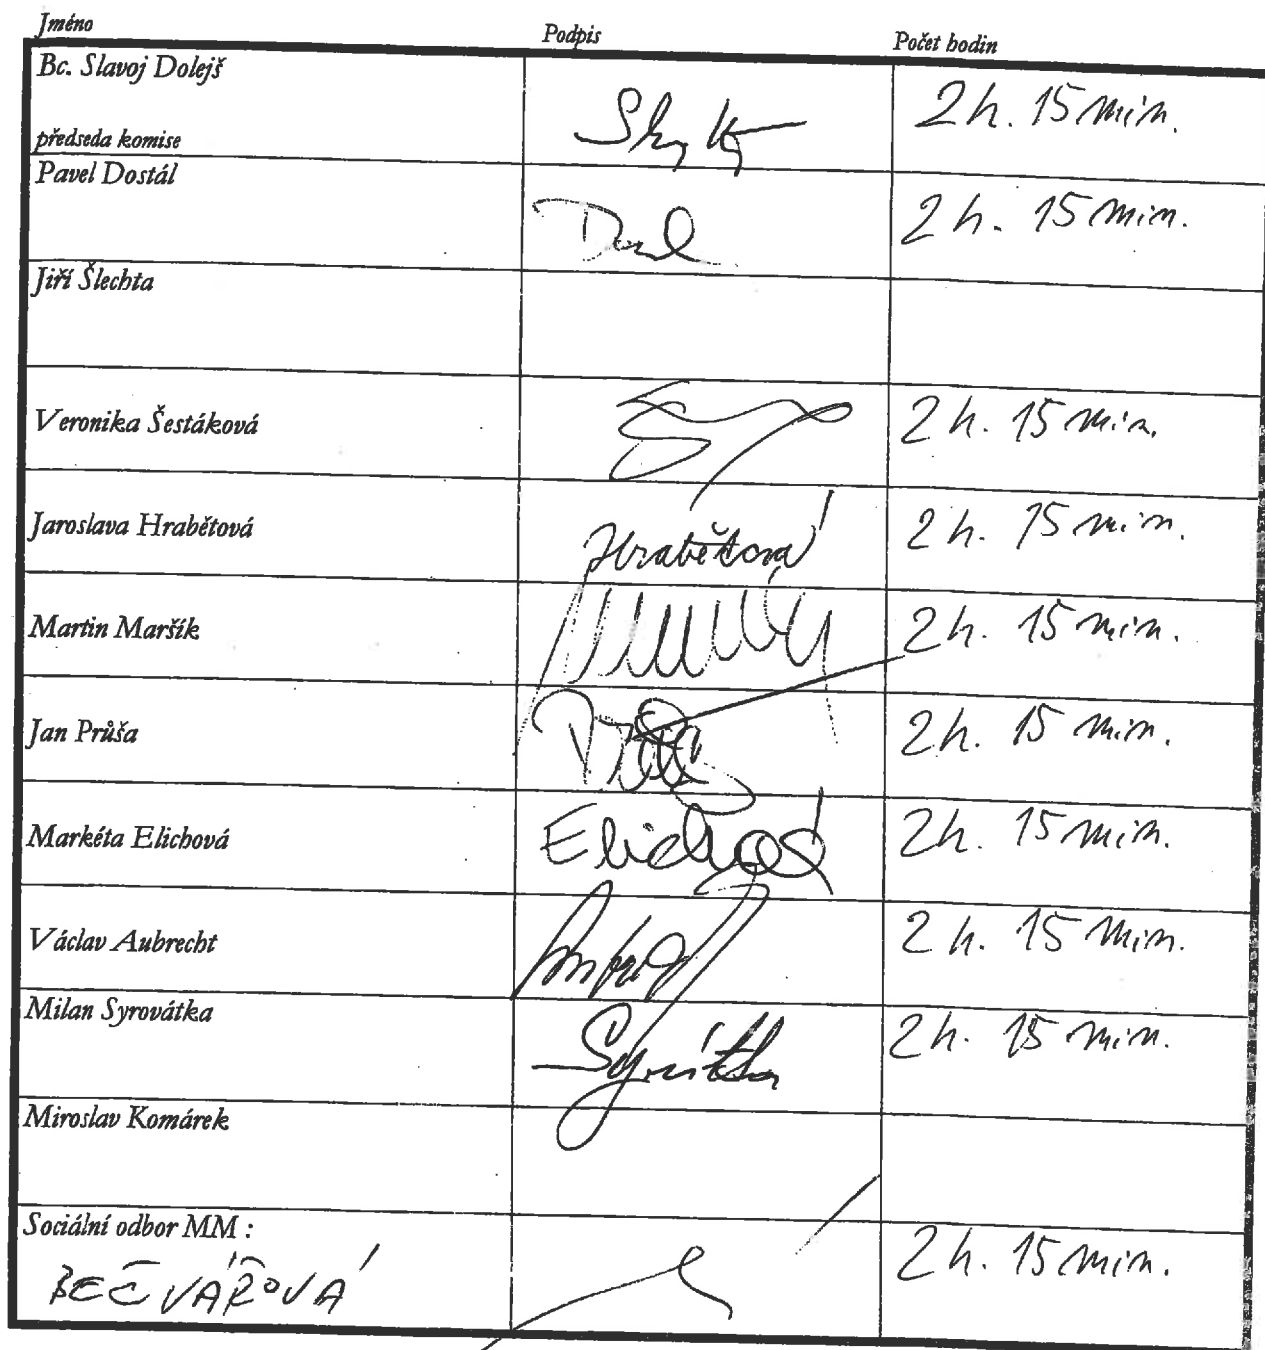 Jméno Podpis Počet hodin
Bc. Slavoj Dolejš 2h. 15 min.
předseda komise
Pavel Dostál 2h. 15 min.
Jiří Šlechta
Veronika Šestáková 2h. 15 min.
Jaroslava Hrabětová Hrabětová 2h. 15 min.
Martin Maršík 2h. 15 min.
Jan Průša 2h. 15 min.
Markéta Elichová Elichová 2h. 15 min.
Václav Aubrecht 2h. 15 min.
Milan Syrovátka 2h. 15 min.
Miroslav Komárek
Sociální odbor MM : 2h. 15 min.
BEČVÁŘOVÁ